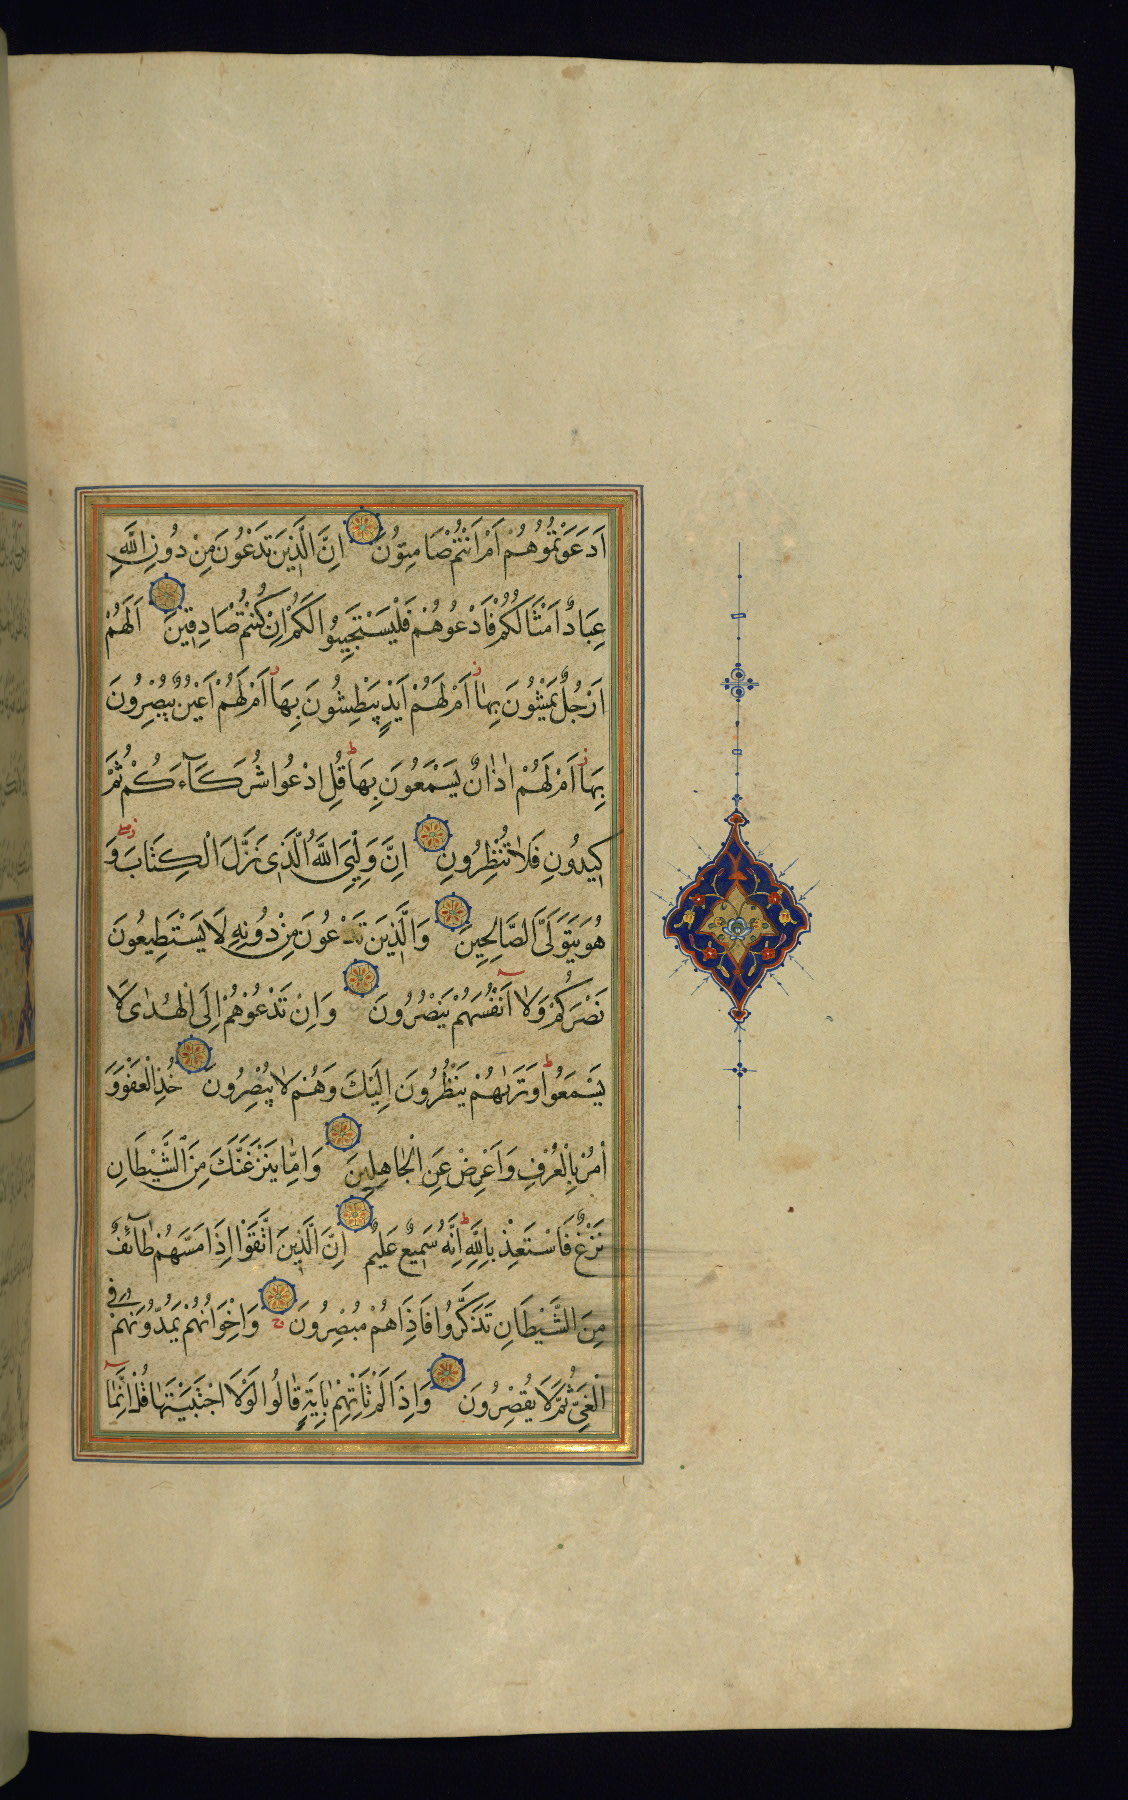 اَدَعَوْتُمُوهُمْ اَمْ اَنْتُمْ صَامِتُونَ اِنَّ الَّذِينَ تَدْعُونَ مِنْ دُونِ اللّٰهِ
عِبَادٌ اَمْثَالُكُمْ فَادْعُوهُمْ فَلْيَسْتَجِيبُوا لَكُمْ اِنْ كُنْتُمْ صَادِقِينَ اَلَهُمْ
اَرْجُلٌ يَمْشُونَ بِهَا اَمْ لَهُمْ اَيْدٍ يَبْطِشُونَ بِهَا اَمْ لَهُمْ اَعْيُنٌ يُبْصِرُونَ
بِهَا اَمْ لَهُمْ اٰذَانٌ يَسْمَعُونَ بِهَا قُلِ ادْعُوا شُرَكَآءَكُمْ ثُمَّ
كِيدُونِ فَلَا تُنْظِرُونِ اِنَّ وَلِيِّيَ اللّٰهُ الَّذِي نَزَّلَ الْكِتَابَ وَ
هُوَ يَتَوَلَّى الصَّالِحِينَ وَالَّذِينَ تَدْعُونَ مِنْ دُونِهِ لَا يَسْتَطِيعُونَ
نَصْرَكُمْ وَلَا اَنْفُسَهُمْ يَنْصُرُونَ وَاِنْ تَدْعُوهُمْ اِلَى الْهُدٰى لَا
يَسْمَعُوا وَتَرٰيهُمْ يَنْظُرُونَ اِلَيْكَ وَهُمْ لَا يُبْصِرُونَ خُذِ الْعَفْوَ وَ
اْمُرْ بِالْعُرْفِ وَاَعْرِضْ عَنِ الْجَاهِلِينَ وَاِمَّا يَنْزَغَنَّكَ مِنَ الشَّيْطَانِ
نَزْغٌ فَاسْتَعِذْ بِاللّٰهِ اِنَّهُ سَمِيعٌ عَلِيمٌ اِنَّ الَّذِينَ اتَّقَوْا اِذَا مَسَّهُمْ طَآئِفٌ
مِنَ الشَّيْطَانِ تَذَكَّرُوا فَاِذَا هُمْ مُبْصِرُونَ وَاِخْوَانُهُمْ يَمُدُّونَهُمْ فِي
الْغَيِّ ثُمَّ لَا يُقْصِرُونَ وَاِذَا لَمْ تَاْتِهِمْ بِاٰيَةٍ قَالُوا لَوْلَا اجْتَبَيْتَهَا قُلْ اِنَّمَا